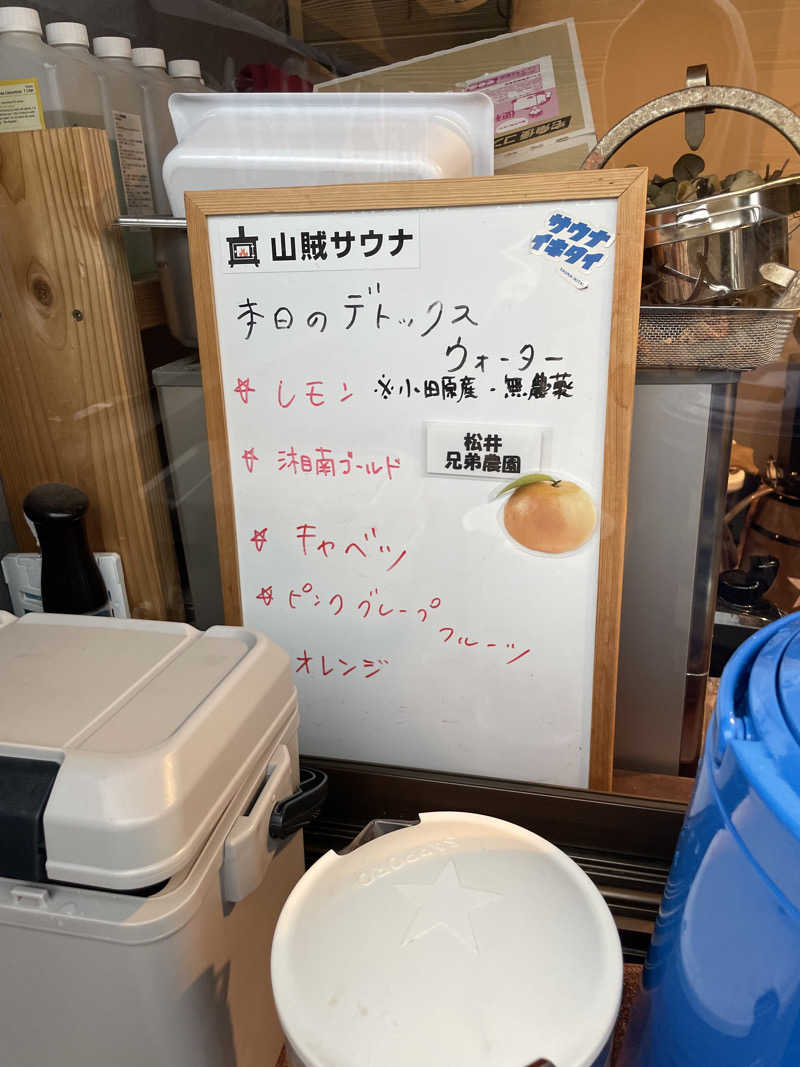 山賊サウナ
サウナ
イキタイ
本日のデトックス
ウォーター
☆ レモン ※小田原産・無農薬
☆ 湘南ゴールド
松井
兄弟農園
☆ キャベツ
☆ ピンクグレープ
フルーツ
オレンジ
SAPPORO